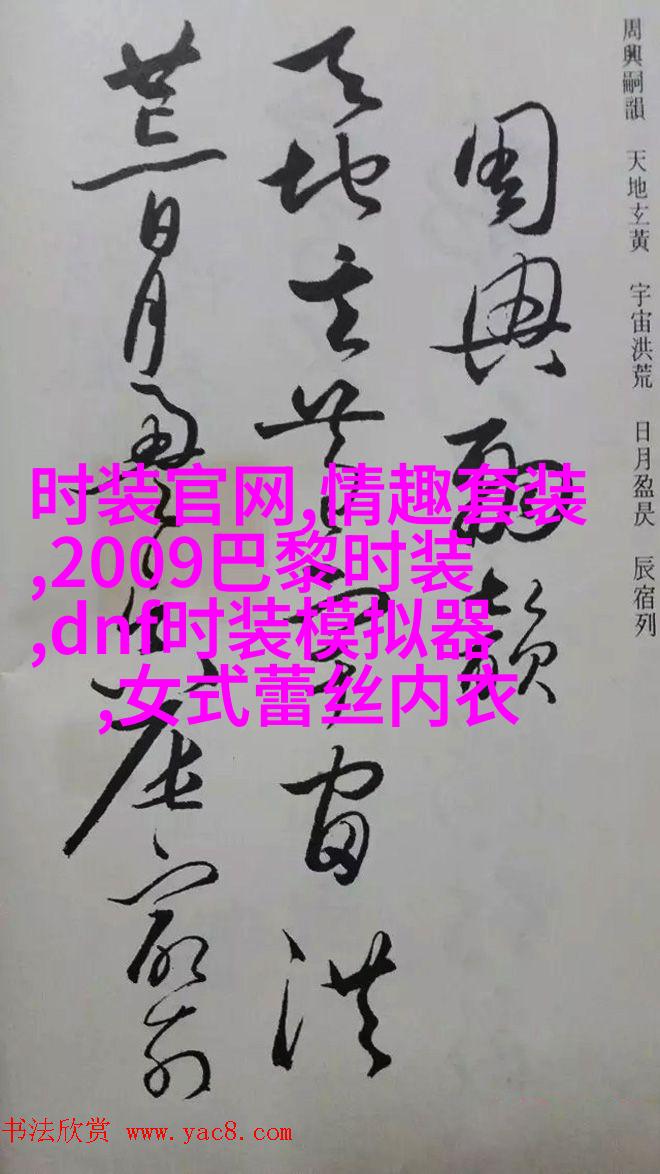 周興嗣韻 天地玄黃 宇宙洪荒 日月盈昃 辰宿列
周興嗣韻
天地玄黃宇宙洪
荒日月盈昃辰宿列
时装官网,情趣套装
,2009巴黎时装
,dnf时装模拟器
,女式蕾丝内衣
书法欣赏 www.yac8.com